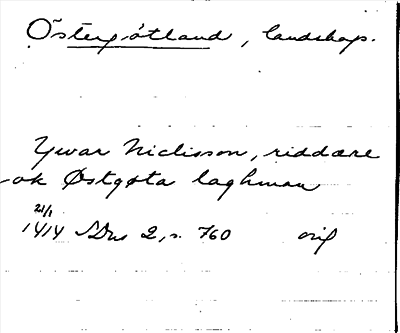 Östergötland, landskap.
Ywar Niclisson, riddare
ok Østgøta laghman
21/1
1414 SDns 2, s. 760 orig